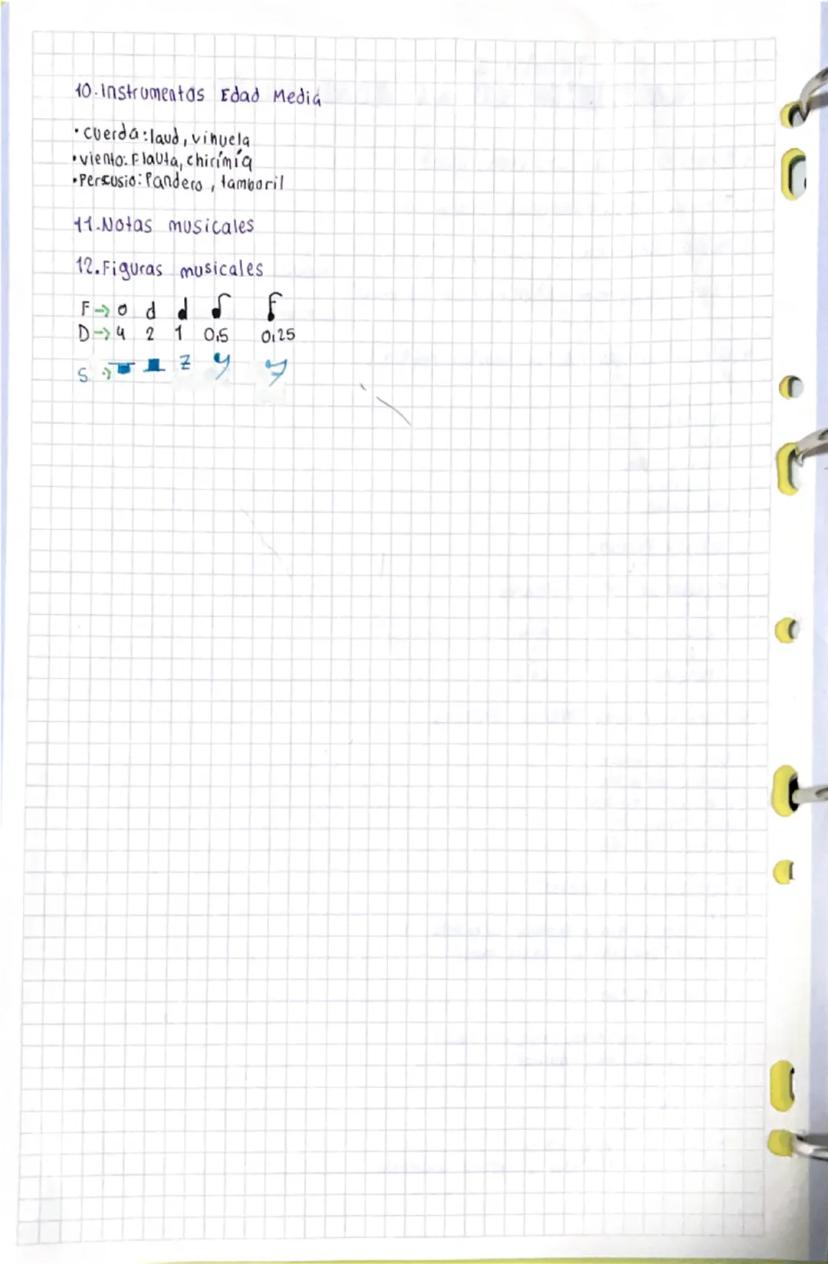 10.Instrumentos Edad Media
•cuerda:laud, vihuela
•viento:Flauta, chirimía
•Percusio:Pandero, tamboril
11.Notas musicales
12.Figuras musicales
F→
D→ 4 2 1 0,5 0,25
S→